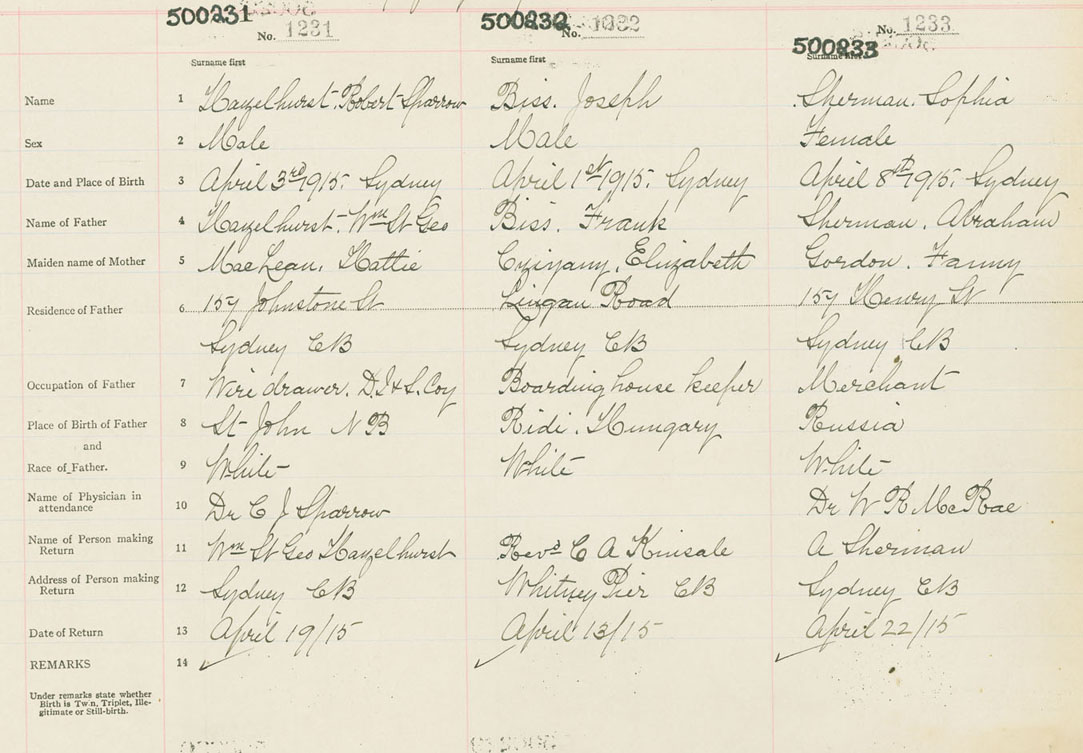 500231 500232 500233
No. 1231 No. 1232 No. 1233
Surname first Surname first Surname first
Name 1 Hazelhurst. Robert Sparrow Biss. Joseph Sherman. Sophia
Sex 2 Male Male Female
Date and Place of Birth 3 April 3rd 1915. Sydney April 1st 1915. Sydney April 8th 1915. Sydney
Name of Father 4 Hazelhurst. Wm St Geo Biss. Frank Sherman. Abraham
Maiden name of Mother 5 MacLean. Hattie Elizabeth Gordon. Fanny
Residence of Father 6 157 Johnstone St Lingan Road 157 Henry St
Sydney CB Sydney CB Sydney CB
Occupation of Father 7 Wire drawer. D.I & S. Coy Boarding house keeper Merchant
Place of Birth of Father 8 St John N B Ridi. Hungary Russia
and
Race of Father. 9 White White White
Name of Physician in
attendance 10 Dr C J Sparrow Dr W R McRae
Name of Person making
Return 11 Wm St Geo Hazelhurst Revd C A Kinsale A Sherman
Address of Person making
Return 12 Sydney CB Whitney Pier CB Sydney CB
Date of Return 13 April 19/15 April 13/15 April 22/15
REMARKS 14
Under remarks state whether
Birth is Twin, Triplet, Ille-
gitimate or Still-birth.